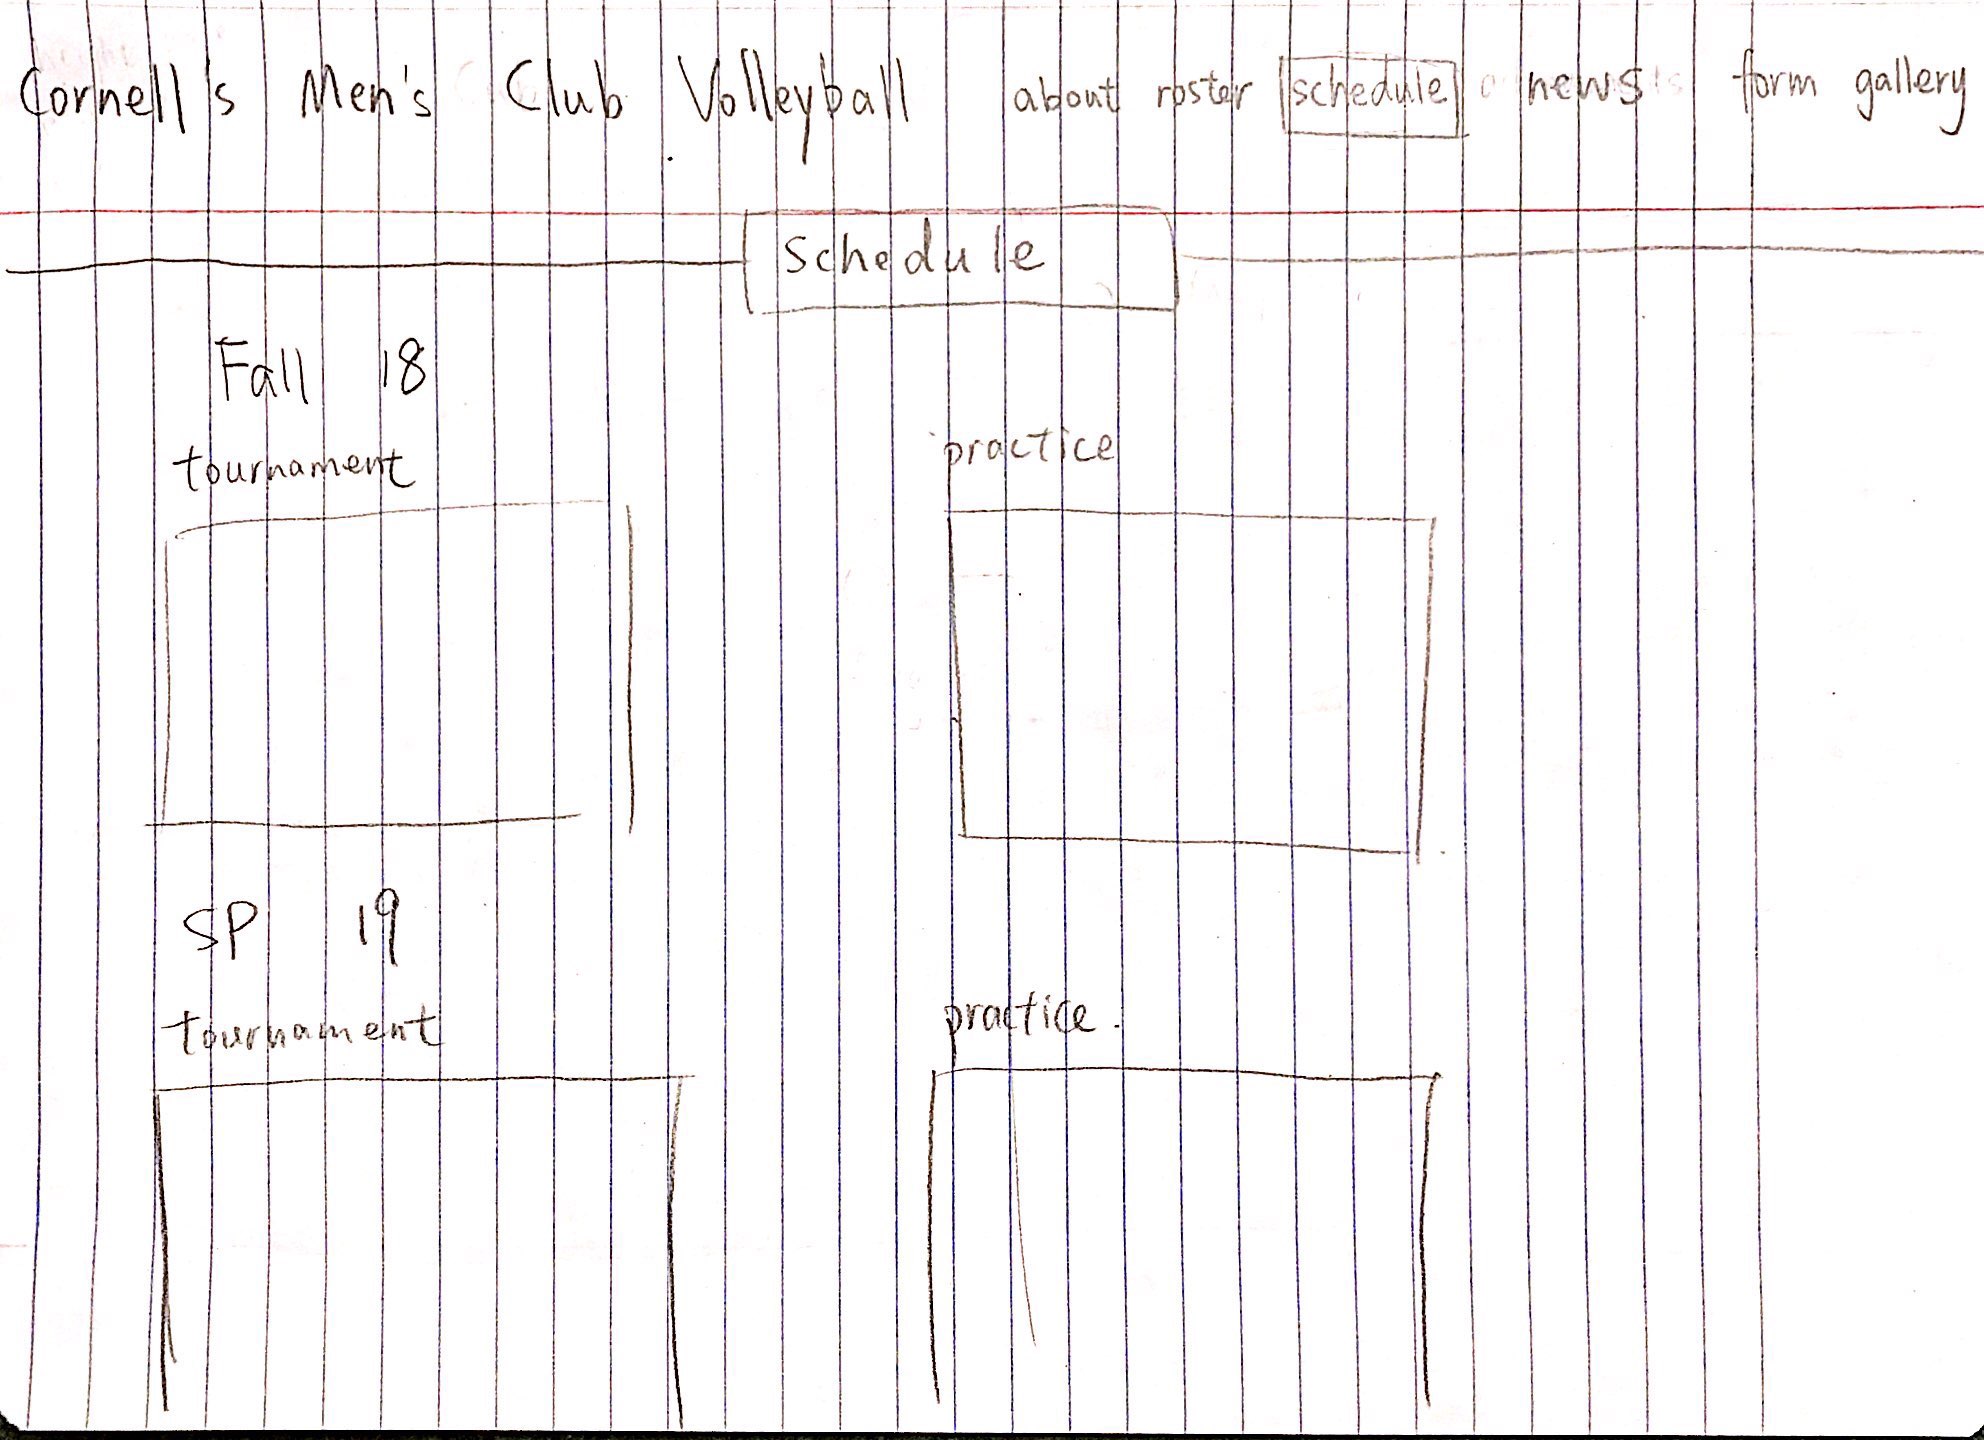 Cornell's Men's Club Volleyball about roster schedule news form gallery
schedule
Fall 18
tournament practice
SP 19
tournament practice.